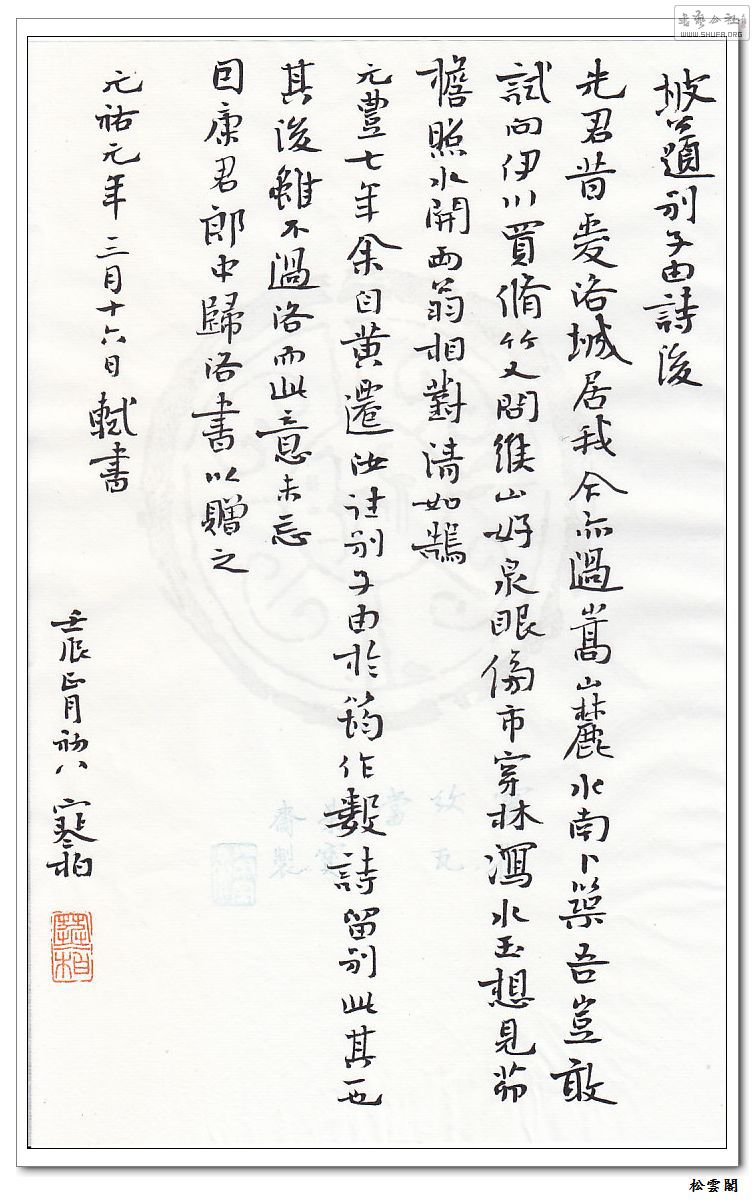 坡公題別子由詩後
先君昔愛洛城居我今亦過嵩山麓水南卜築吾豈敢
試向伊川買脩竹又問緱山好泉眼傍市穿林瀉水玉想見茆
檐照水開兩翁相對清如鵠
元豐七年余自黃遷汝往別子由於筠作數詩留別此其一也
其後雖不過洛而此意未忘
因康君郎中歸洛書以贈之
元祐元年三月十六日軾書
壬辰正月初八 寒柏
書藝公社
WWW.SHUFA.ORG
松雲閣